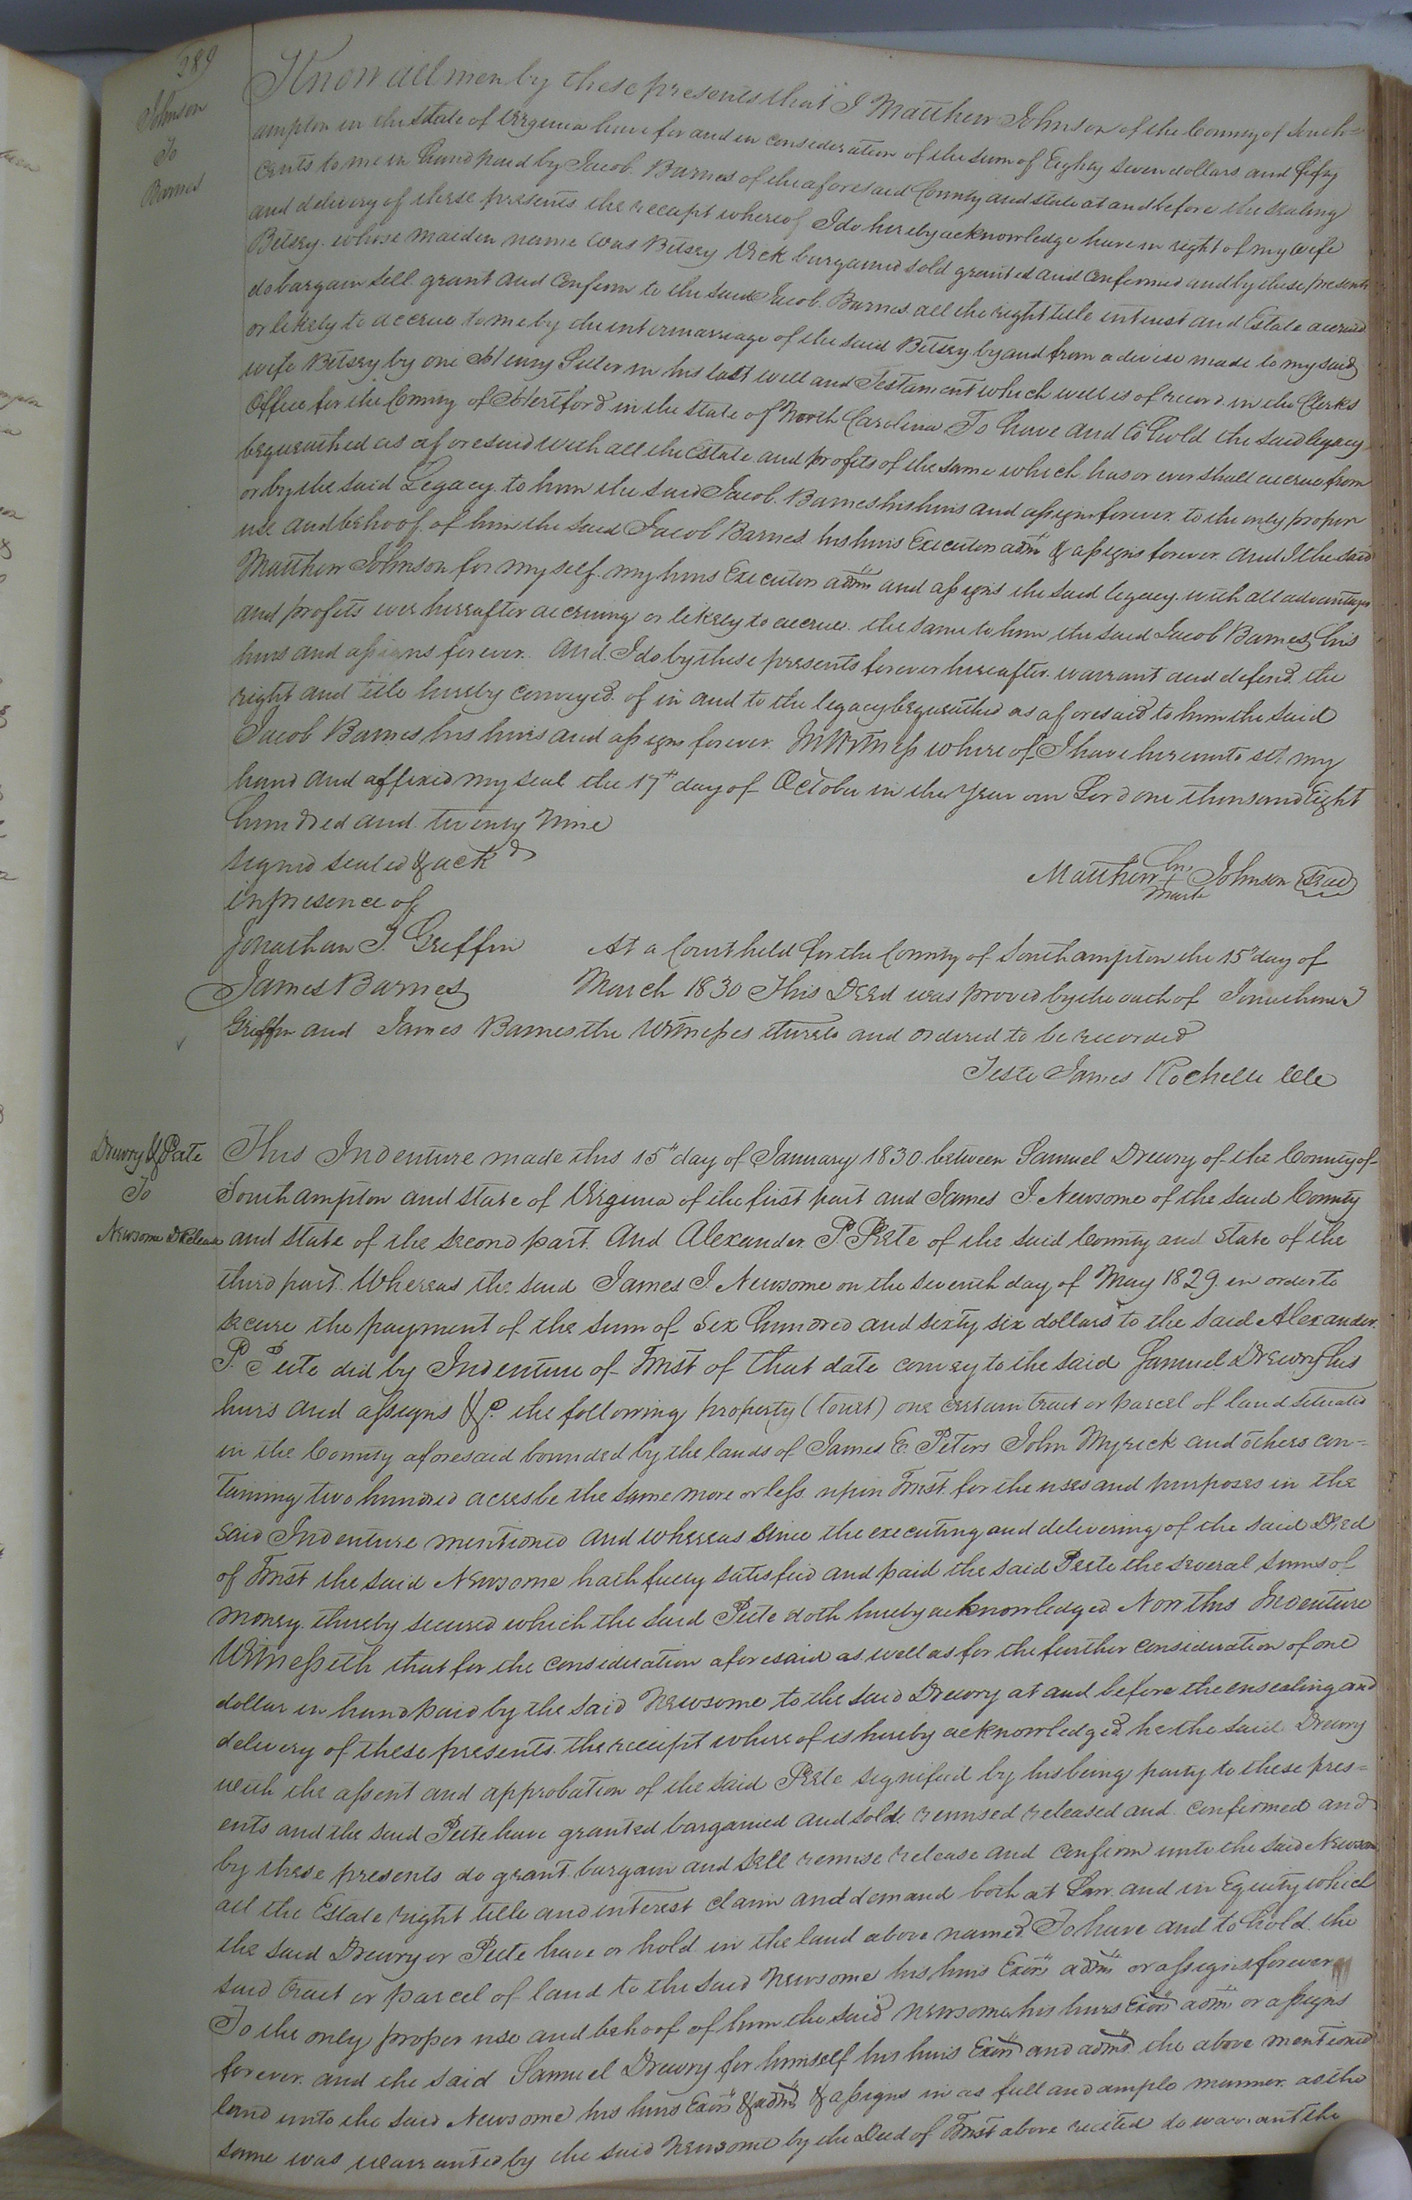 289
Johnson
To
Barnes
Know all men by these presents that I Matthew Johnson of the County of South=
ampton in the State of Virginia have for and in consideration of the sum of Eighty seven dollars and fifty
cents to me in hand paid by Jacob Barnes of the aforesaid County and state at and before the sealing
and delivery of these presents the receipt whereof I do hereby acknowledge have in right of my wife
Betsey whose maiden name was Betsey Vick bargained sold granted and confirmed and by these presents
do bargain sell grant and confirm to the said Jacob Barnes all the right title interest and Estate accrued
or likely to accrue to me by the intermarriage of the said Betsey by and from a devise made to my said
wife Betsey by one Henry in his last will and Testament which will is of record in the Clerks
Office for the County of Hertford in the state of North Carolina To have and to hold the said legacy
bequeathed as aforesaid with all the Estate and profits of the same which has or ever shall accrue from
or by the said Legacy to him the said Jacob Barnes his heirs and assigns forever to the only proper
use and behoof of him the said Jacob Barnes his heirs Executors adm.rs & assigns forever and I the said
Matthew Johnson for myself my heirs Executors adm.rs and assigns the said legacy with all advantages
and profits ever hereafter accruing or likely to accrue the same to him the said Jacob Barnes his
heirs and assigns forever. And I do by these presents forever hereafter warrant and defend the
right and title hereby conveyed of in and to the legacy bequeathed as aforesaid to him the said
Jacob Barnes his heirs and assigns forever. In Witness whereof I have hereunto set my
hand and affixed my seal the 17th day of October in the year our Lord one thousand Eight
hundred and twenty Nine
signed sealed & ackd
in presence of
Matthew his + mark Johnson Seal
Jonathan J. Griffin
James Barnes
At a Court held for the County of Southampton the 15th day of
March 1830 This Deed was proved by the oath of Jonathan J
Griffin and James Barnes the Witnesses thereto and ordered to be recorded
Teste James Rochelle Clk
Drewry & Pete
To
Newsome D Release
This Indenture made this 15th day of January 1830 between Samuel Drewry of the County of
Southampton and State of Virginia of the first part and James J. Newsome of the said County
and State of the second part. And Alexander P. Peete of the said County and State of the
third part. Whereas the said James J. Newsome on the seventh day of May 1829 in order to
secure the payment of the sum of six hundred and sixty six dollars to the said Alexander
P. Peete did by Indenture of Trust of that date convey to the said Samuel Drewry his
heirs and assigns &c. the following property (towit) one certain tract or parcel of land situated
in the County aforesaid bounded by the lands of James E. Peters John Myrick and others con=
taining two hundred acres be the same more or less upon Trust for the uses and purposes in the
said Indenture mentioned and whereas since the executing and delivering of the said Deed
of Trust the said Newsome hath fully satisfied and paid the said Peete the several sums of
money thereby secured which the said Peete doth hereby acknowledged Now this Indenture
Witnesseth that for the consideration aforesaid as well as for the further consideration of one
dollar in hand paid by the said Newsome to the said Drewry at and before the ensealing and
delivery of these presents the receipt whereof is hereby acknowledged he the said Drewry
with the assent and approbation of the said Peete signified by his being party to these pres=
ents and the said Peete have granted bargained and sold remised released and confirmed and
by these presents do grant bargain and sell remise release and confirm unto the said Newsom
all the Estate right title and interest claim and demand both at Law and in Equity which
the said Drewry or Peete have or hold in the land above named. To have and to hold the
said tract or parcel of land to the said Newsome his heirs Exors adm.rs or assigns forever
To the only proper use and behoof of him the said Newsome his heirs Exors adm.rs or assigns
forever and the said Samuel Drewry for himself his heirs Exors and adm.rs the above mentioned
land unto the said Newsome his heirs Exors & adm.rs & assigns in as full and ample manner as the
same was warranted by the said Newsome by the Deed of Trust above recited do warrant the